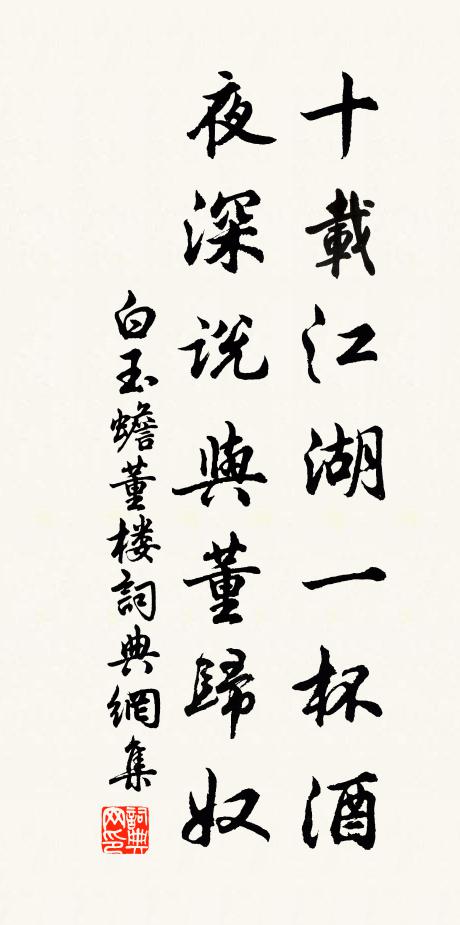 十載江湖一杯酒
夜深説與董歸奴
白玉蟾董楼詞典網集
詞典網印